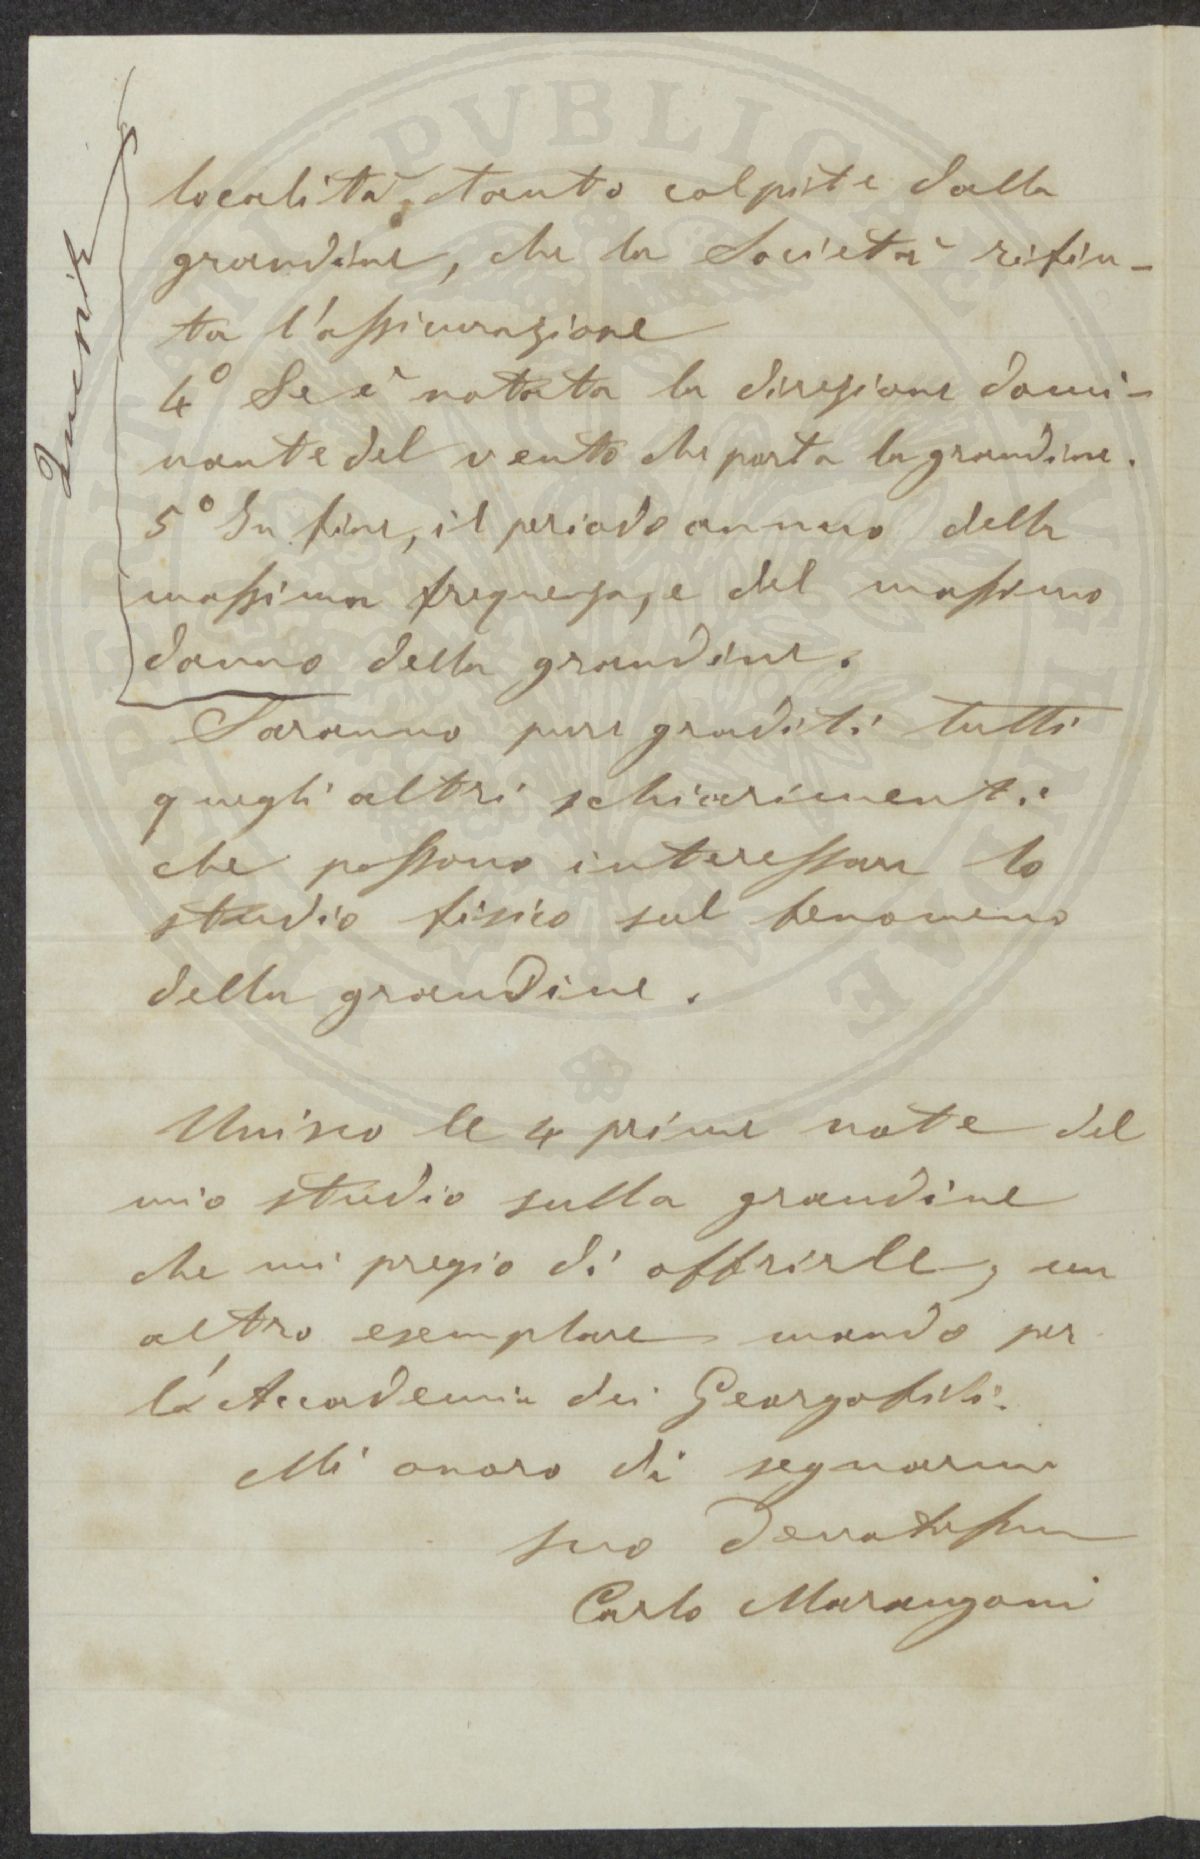 località, tanto colpite dalla
grandine, che la Società rifiu-
ta l'assicurazione
4° Se è notata la direzione domi-
nante del vento che porta la grandine.
5° In fine, il periodo annuo della
massima frequenza, e del massimo
danno della grandine.
Saranno pure graditi tutti
quegli altri schiarimenti
che possono interessare lo
studio fisico sul fenomeno
della grandine.
Unisco le 4 prime note del
mio studio sulla grandine
che mi pregio di offrirle, un
altro esemplare mando per
l'Accademia dei Georgofili.
Mi onoro di segnarmi
suo
Carlo Marangoni